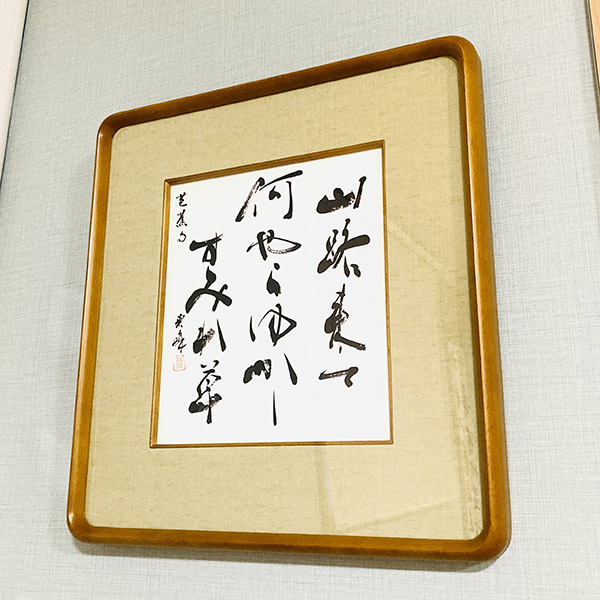 山路来て
何やらゆかし
すみれ草
芭蕉句